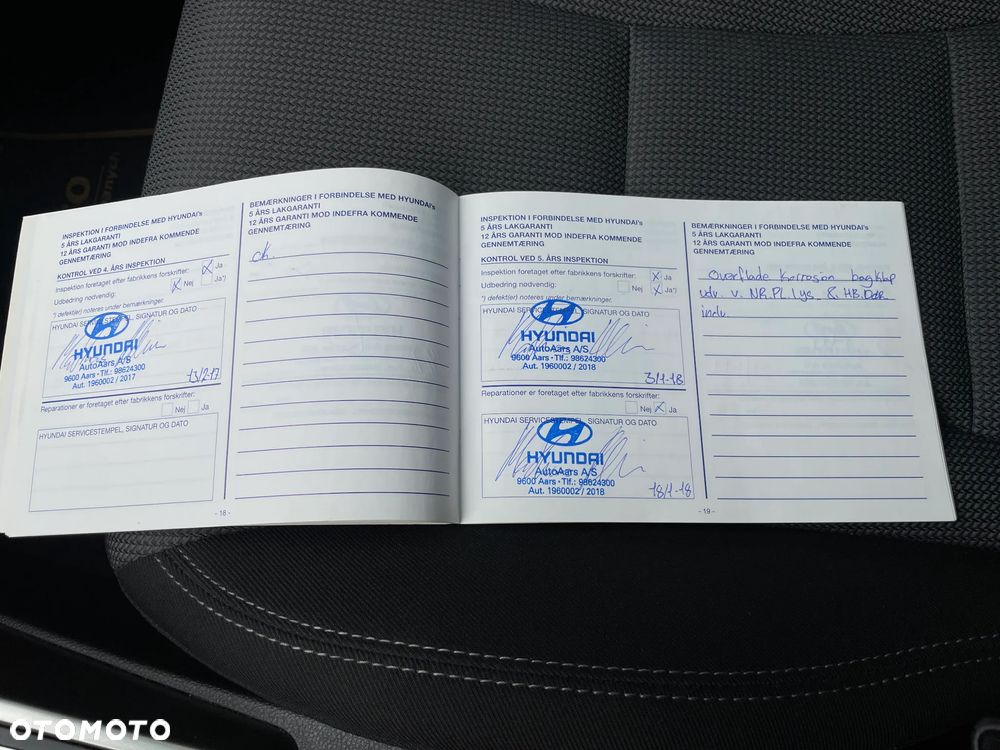 INSPEKTION I FORBINDELSE MED HYUNDAI's
5 ÅRS LAKGARANTI
12 ÅRS GARANTI MOD INDEFRA KOMMENDE
GENNEMTÆRING
KONTROL VED 4. ÅRS INSPEKTION
Inspektion foretaget efter fabrikkens forskrifter: X Ja
Udbedring nødvendig: X Nej Ja*)
*) defekt(er) noteres under bemærkninger.
HYUNDAI SERVICESTEMPEL, SIGNATUR OG DATO
HYUNDAI
AutoAars A/S
9600 Aars · Tlf.: 98624300
Aut. 1960002 / 2017
13/2-17
Reparationer er foretaget efter fabrikkens forskrifter:
Nej Ja
HYUNDAI SERVICESTEMPEL, SIGNATUR OG DATO
BEMÆRKNINGER I FORBINDELSE MED HYUNDAI's
5 ÅRS LAKGARANTI
12 ÅRS GARANTI MOD INDEFRA KOMMENDE
GENNEMTÆRING
ok.
- 18 -
INSPEKTION I FORBINDELSE MED HYUNDAI's
5 ÅRS LAKGARANTI
12 ÅRS GARANTI MOD INDEFRA KOMMENDE
GENNEMTÆRING
KONTROL VED 5. ÅRS INSPEKTION
Inspektion foretaget efter fabrikkens forskrifter: X Ja
Udbedring nødvendig: Nej X Ja*)
*) defekt(er) noteres under bemærkninger.
HYUNDAI SERVICESTEMPEL, SIGNATUR OG DATO
HYUNDAI
AutoAars A/S
9600 Aars · Tlf.: 98624300
Aut. 1960002 / 2018
3/1-18
Reparationer er foretaget efter fabrikkens forskrifter:
Nej X Ja
HYUNDAI SERVICESTEMPEL, SIGNATUR OG DATO
HYUNDAI
AutoAars A/S
9600 Aars · Tlf.: 98624300
Aut. 1960002 / 2018
18/1-18
BEMÆRKNINGER I FORBINDELSE MED HYUNDAI's
5 ÅRS LAKGARANTI
12 ÅRS GARANTI MOD INDEFRA KOMMENDE
GENNEMTÆRING
Overflade Korrosion bagklap
udv. v. NR.Pl. lys & HB.Dør
indv.
- 19 -
OTOMOTO